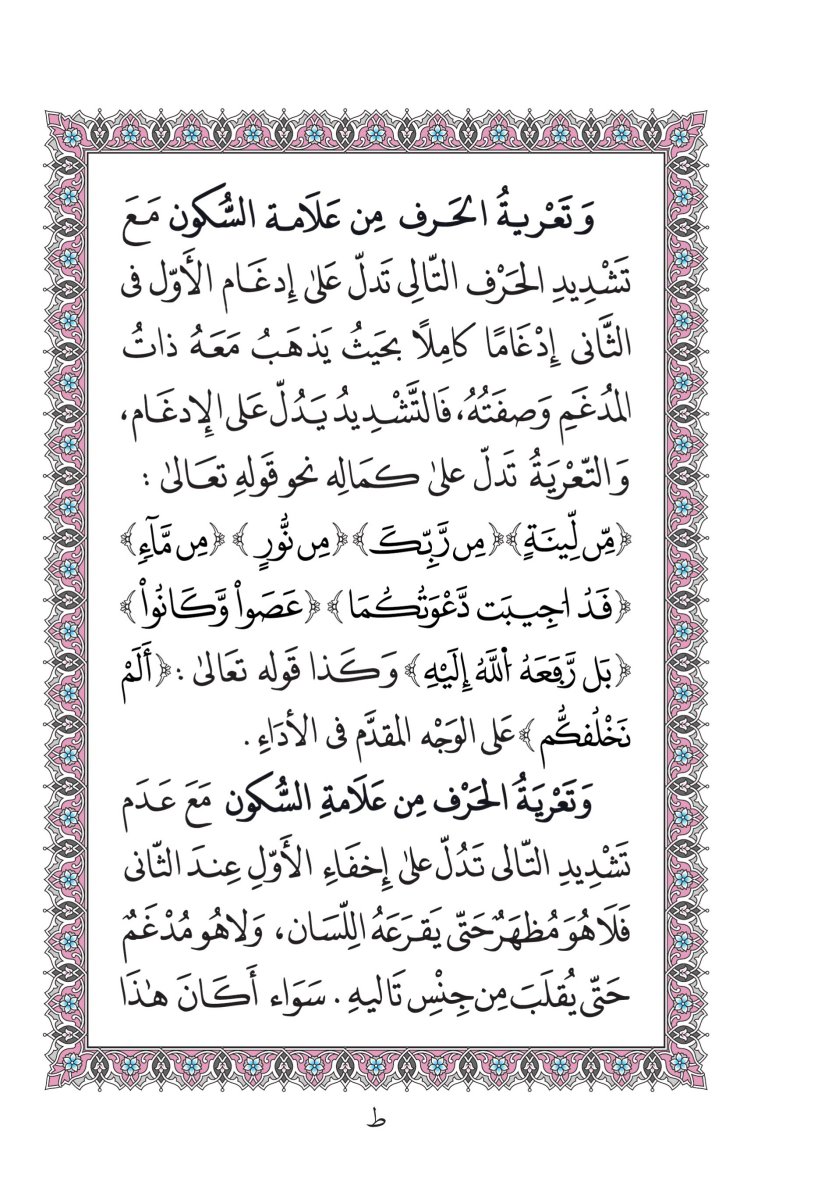 وَتَعْرِيةُ الحَرف مِن عَلَامة السُّكون مَعَ
تَشْدِيدِ الحَرْف التّالِى تَدلّ عَلىٰ إدغَام الأَوّل فى
الثَّانى إِدْغَامًا كامِلًا بحَيثُ يَذهَبُ مَعَهُ ذاتُ
المُدغَمِ وَصفَتُهُ، فَالتَّشْدِيدُ يَدُلّ عَلى الإدغَام،
وَالتّعْرِيَةُ تَدلّ علىٰ كمَالِه نحو قَولهِ تعَالىٰ :
﴿مِّن لِّينَةٍ﴾ ﴿مِن رَّبِّكَ﴾ ﴿مِن نُّورٍ﴾ ﴿مِن مَّآءٍ﴾
﴿قَدُ اجِيبَت دَّعْوَتُكُمَا﴾ ﴿عَصَواْ وَّكَانُواْ﴾
﴿بَل رَّفَعَهُ اللَّهُ إِلَيْهِ﴾ وَكَذا قَوله تعَالىٰ : ﴿أَلَمْ
نَخْلُقكُّم﴾ عَلى الوَجْه المقدَّم فى الأدَاءِ .
وَتَعْرِيَةُ الحَرْف مِن عَلَامةِ السُّكون مَعَ عَدَم
تَشْدِيدِ التّالى تَدُلّ علىٰ إِخفَاءِ الأَوّلِ عِندَ الثّانى
فَلَا هُوَ مُظهَرٌ حَتّى يَقرَعَهُ اللِّسَان، وَلا هُو مُدْغَمٌ
حَتّى يُقلَبَ مِن جِنْسِ تَاليهِ . سَوَاء أَكَانَ هٰذَا
ط